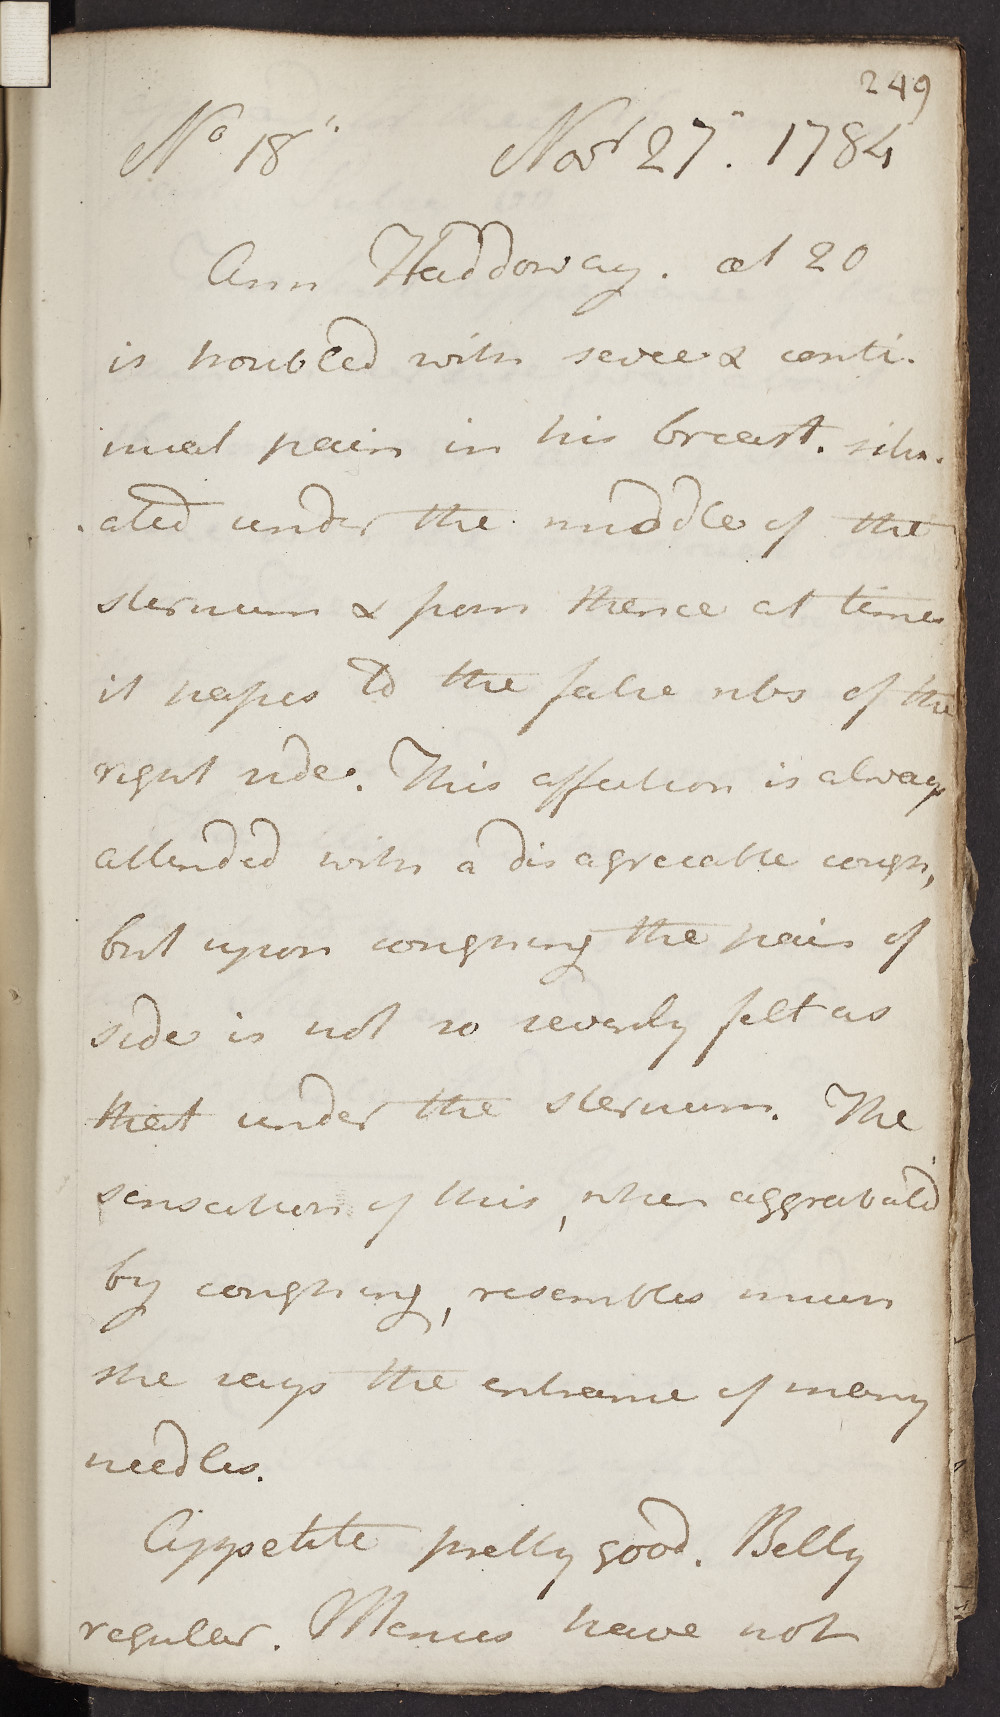 249
No 18" Novr 27" 1784
Ann Haddoway. æt 20
is troubled with severe & conti-
nual pain in his breast. situ-
-ated under the middle of the
sternum & from thence at times
it passes to the false ribs of the
right side. This affection is always
attended with a disagreeable cough,
but upon coughing the pain of
side is not so severely felt as
that under the sternum. The
sensation of this, when aggravated
by coughing, resembles much
she says the entrance of many
needles.
Appetite pretty good. Belly
regular. Menses have not